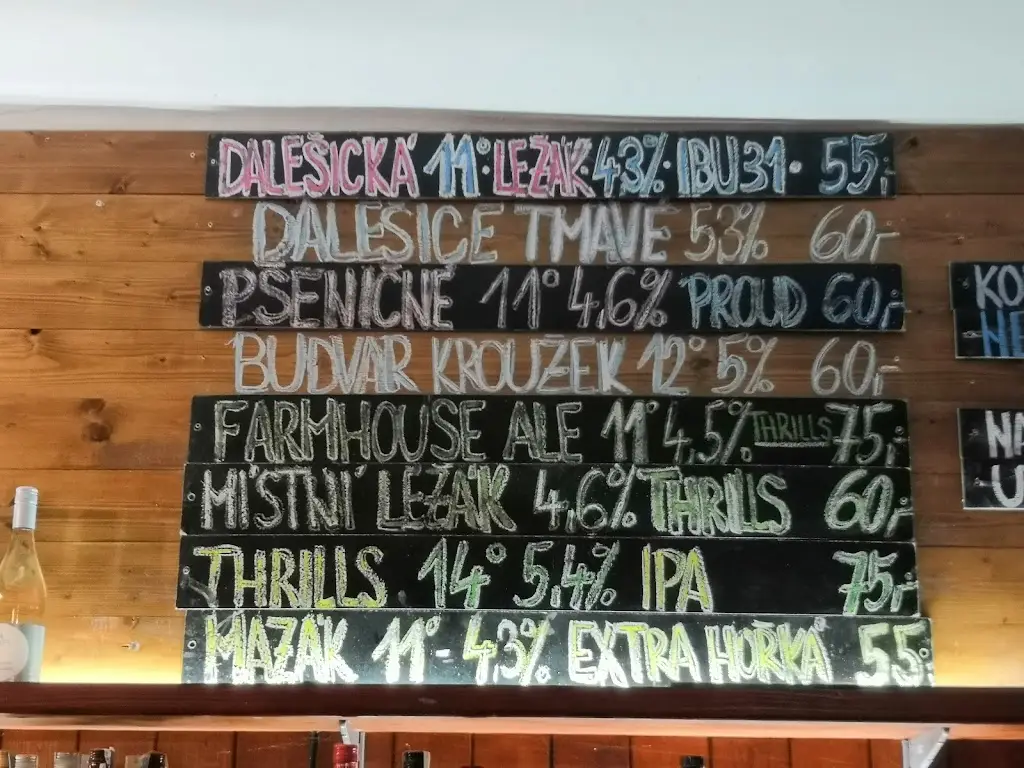 DALEŠICKÁ 11° · LEŽÁK · 4,3% · IBU 31 · 55,-
DALEŠICE TMAVÉ 53% 60,-
PŠENIČNÉ 11° 4,6% PROUD 60,-
BUDVAR KROUŽEK 12° 5% 60,-
FARMHOUSE ALE 11° 4,5% THRILLS 75,-
MÍSTNÍ LEŽÁK 4,6% THRILLS 60,-
THRILLS 14° 5,4% IPA 75,-
MAZÁK 11° - 4,3% EXTRA HOŘKÁ 55,-